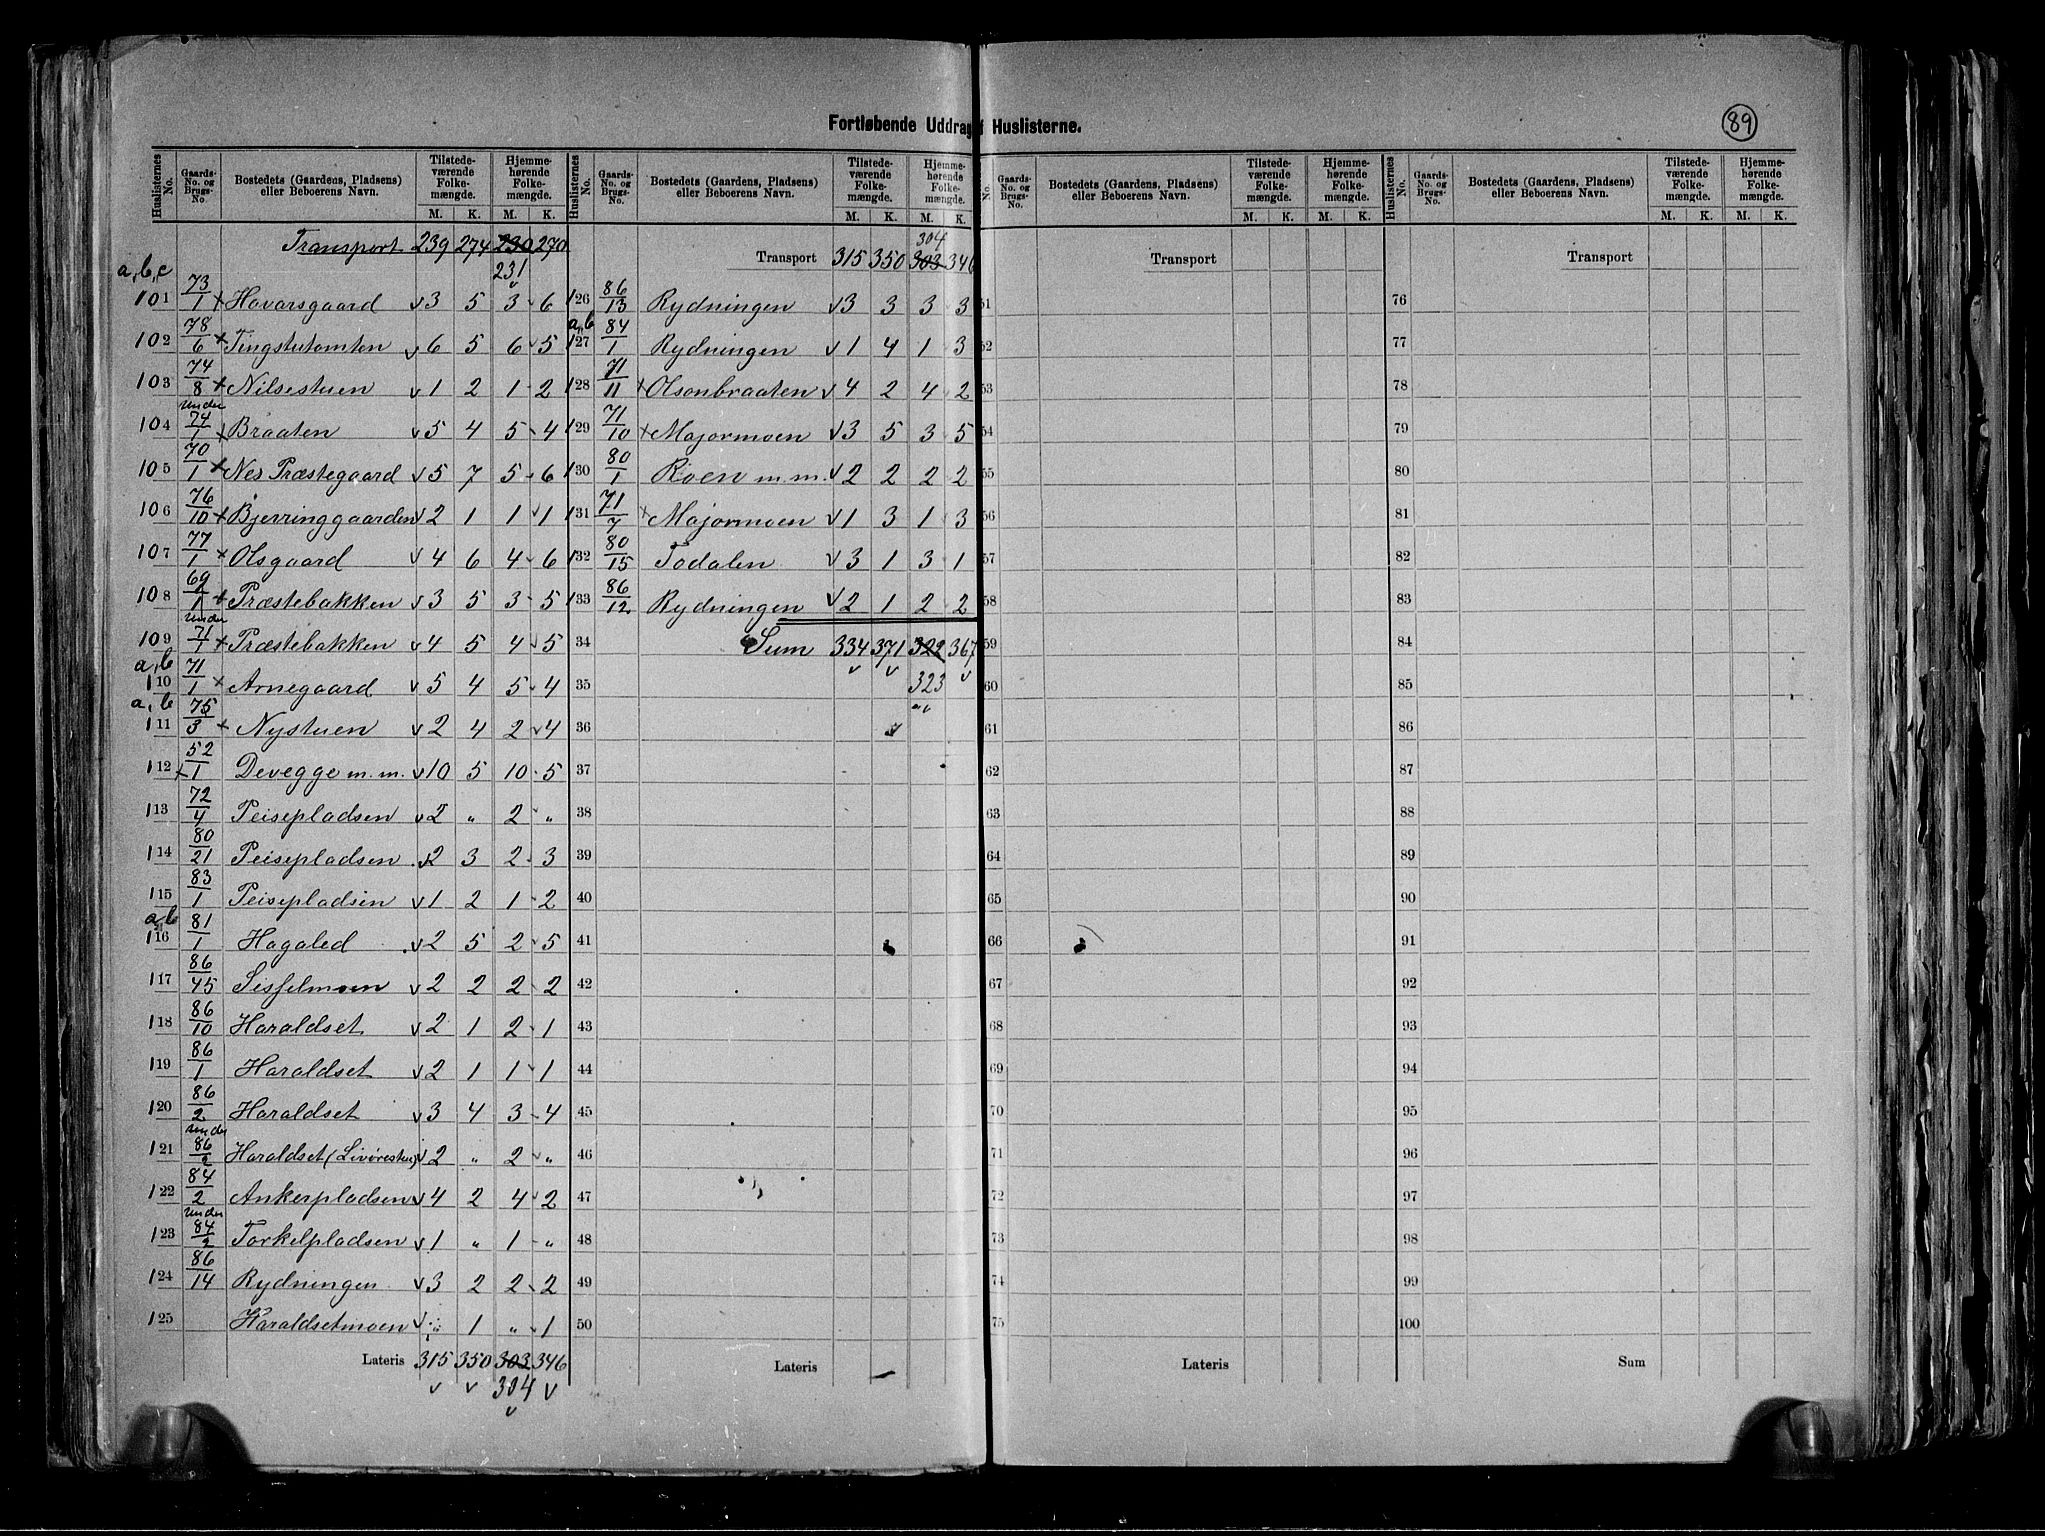 Fortløbende Uddrag af Huslisterne.
89
Huslisternes No. Gaards-No. og Brugs-No. Bostedets (Gaardens, Pladsens) eller Beboerens Navn. Tilstedeværende Folkemængde. M. K. Hjemmehørende Folkemængde. M. K.
Transport 239 274 230 270
231
a,b,c 101 73/1 × Havarsgaard v 3 5 3 6
102 78/6 × Tingstutomten v 6 5 6 5
103 74/8 × Nilsestuen v 1 2 1 2
104 under 74/1 × Braaten v 5 4 5 4
105 70/1 × Nes Præstegaard v 5 7 5 6
106 76/10 × Bjerringgaarden v 2 1 1 1
107 77/1 × Olsgaard v 4 6 4 6
108 69/1 × Præstebakken v 3 5 3 5
109 under 71/1 × Præstebakken v 4 5 4 5
a,b 110 71/1 × Arnegaard v 5 4 5 4
a,b 111 75/3 × Nystuen v 2 4 2 4
112 × 52/1 Devegge m.m. v 10 5 10 5
113 72/4 Peisepladsen v 2 „ 2 „
114 80/21 Peisepladsen v 2 3 2 3
115 83/1 Peisepladsen v 1 2 1 2
a,b 116 81/1 Hagaled v 2 5 2 5
117 86/45 Sisselmoen v 2 2 2 2
118 86/10 Haraldset v 2 1 2 1
119 86/1 Haraldset v 2 1 1 1
120 86/2 Haraldset v 3 4 3 4
121 under 86/2 Haraldset (Livørestu) v 2 „ 2 „
122 84/2 Ankerpladsen v 4 2 4 2
123 under 84/2 Torkelpladsen v 1 „ 1 „
124 86/14 Rydningen v 3 2 2 2
125 Haraldsetmoen v „ 1 „ 1
Lateris 315 350 303 346
v v 304 v
Huslisternes No. Gaards-No. og Brugs-No. Bostedets (Gaardens, Pladsens) eller Beboerens Navn. Tilstedeværende Folkemængde. M. K. Hjemmehørende Folkemængde. M. K.
304
Transport 315 350 303 346
126 86/13 Rydningen v 3 3 3 3
a,b 127 84/1 Rydningen v 1 4 1 3
128 71/11 × Olsonbraaten v 4 2 4 2
129 71/10 × Majormoen v 3 5 3 5
130 80/1 Roen m.m. v 2 2 2 2
131 71/7 × Majormoen v 1 3 1 3
132 80/15 Todalen v 3 1 3 1
133 86/12 Rydningen v 2 1 2 2
34 Sum 334 371 322 367
35 323
36
37
38
39
40
41
42
43
44
45
46
47
48
49
50
Lateris
No. Gaards-No. og Brugs-No. Bostedets (Gaardens, Pladsens) eller Beboerens Navn. Tilstedeværende Folkemængde. M. K. Hjemmehørende Folkemængde. M. K.
Transport
51
52
53
54
55
56
57
58
59
60
61
62
63
64
65
66
67
68
69
70
71
72
73
74
75
Lateris
Huslisternes No. Gaards-No. og Brugs-No. Bostedets (Gaardens, Pladsens) eller Beboerens Navn. Tilstedeværende Folkemængde. M. K. Hjemmehørende Folkemængde. M. K.
Transport
76
77
78
79
80
81
82
83
84
85
86
87
88
89
90
91
92
93
94
95
96
97
98
99
100
Sum